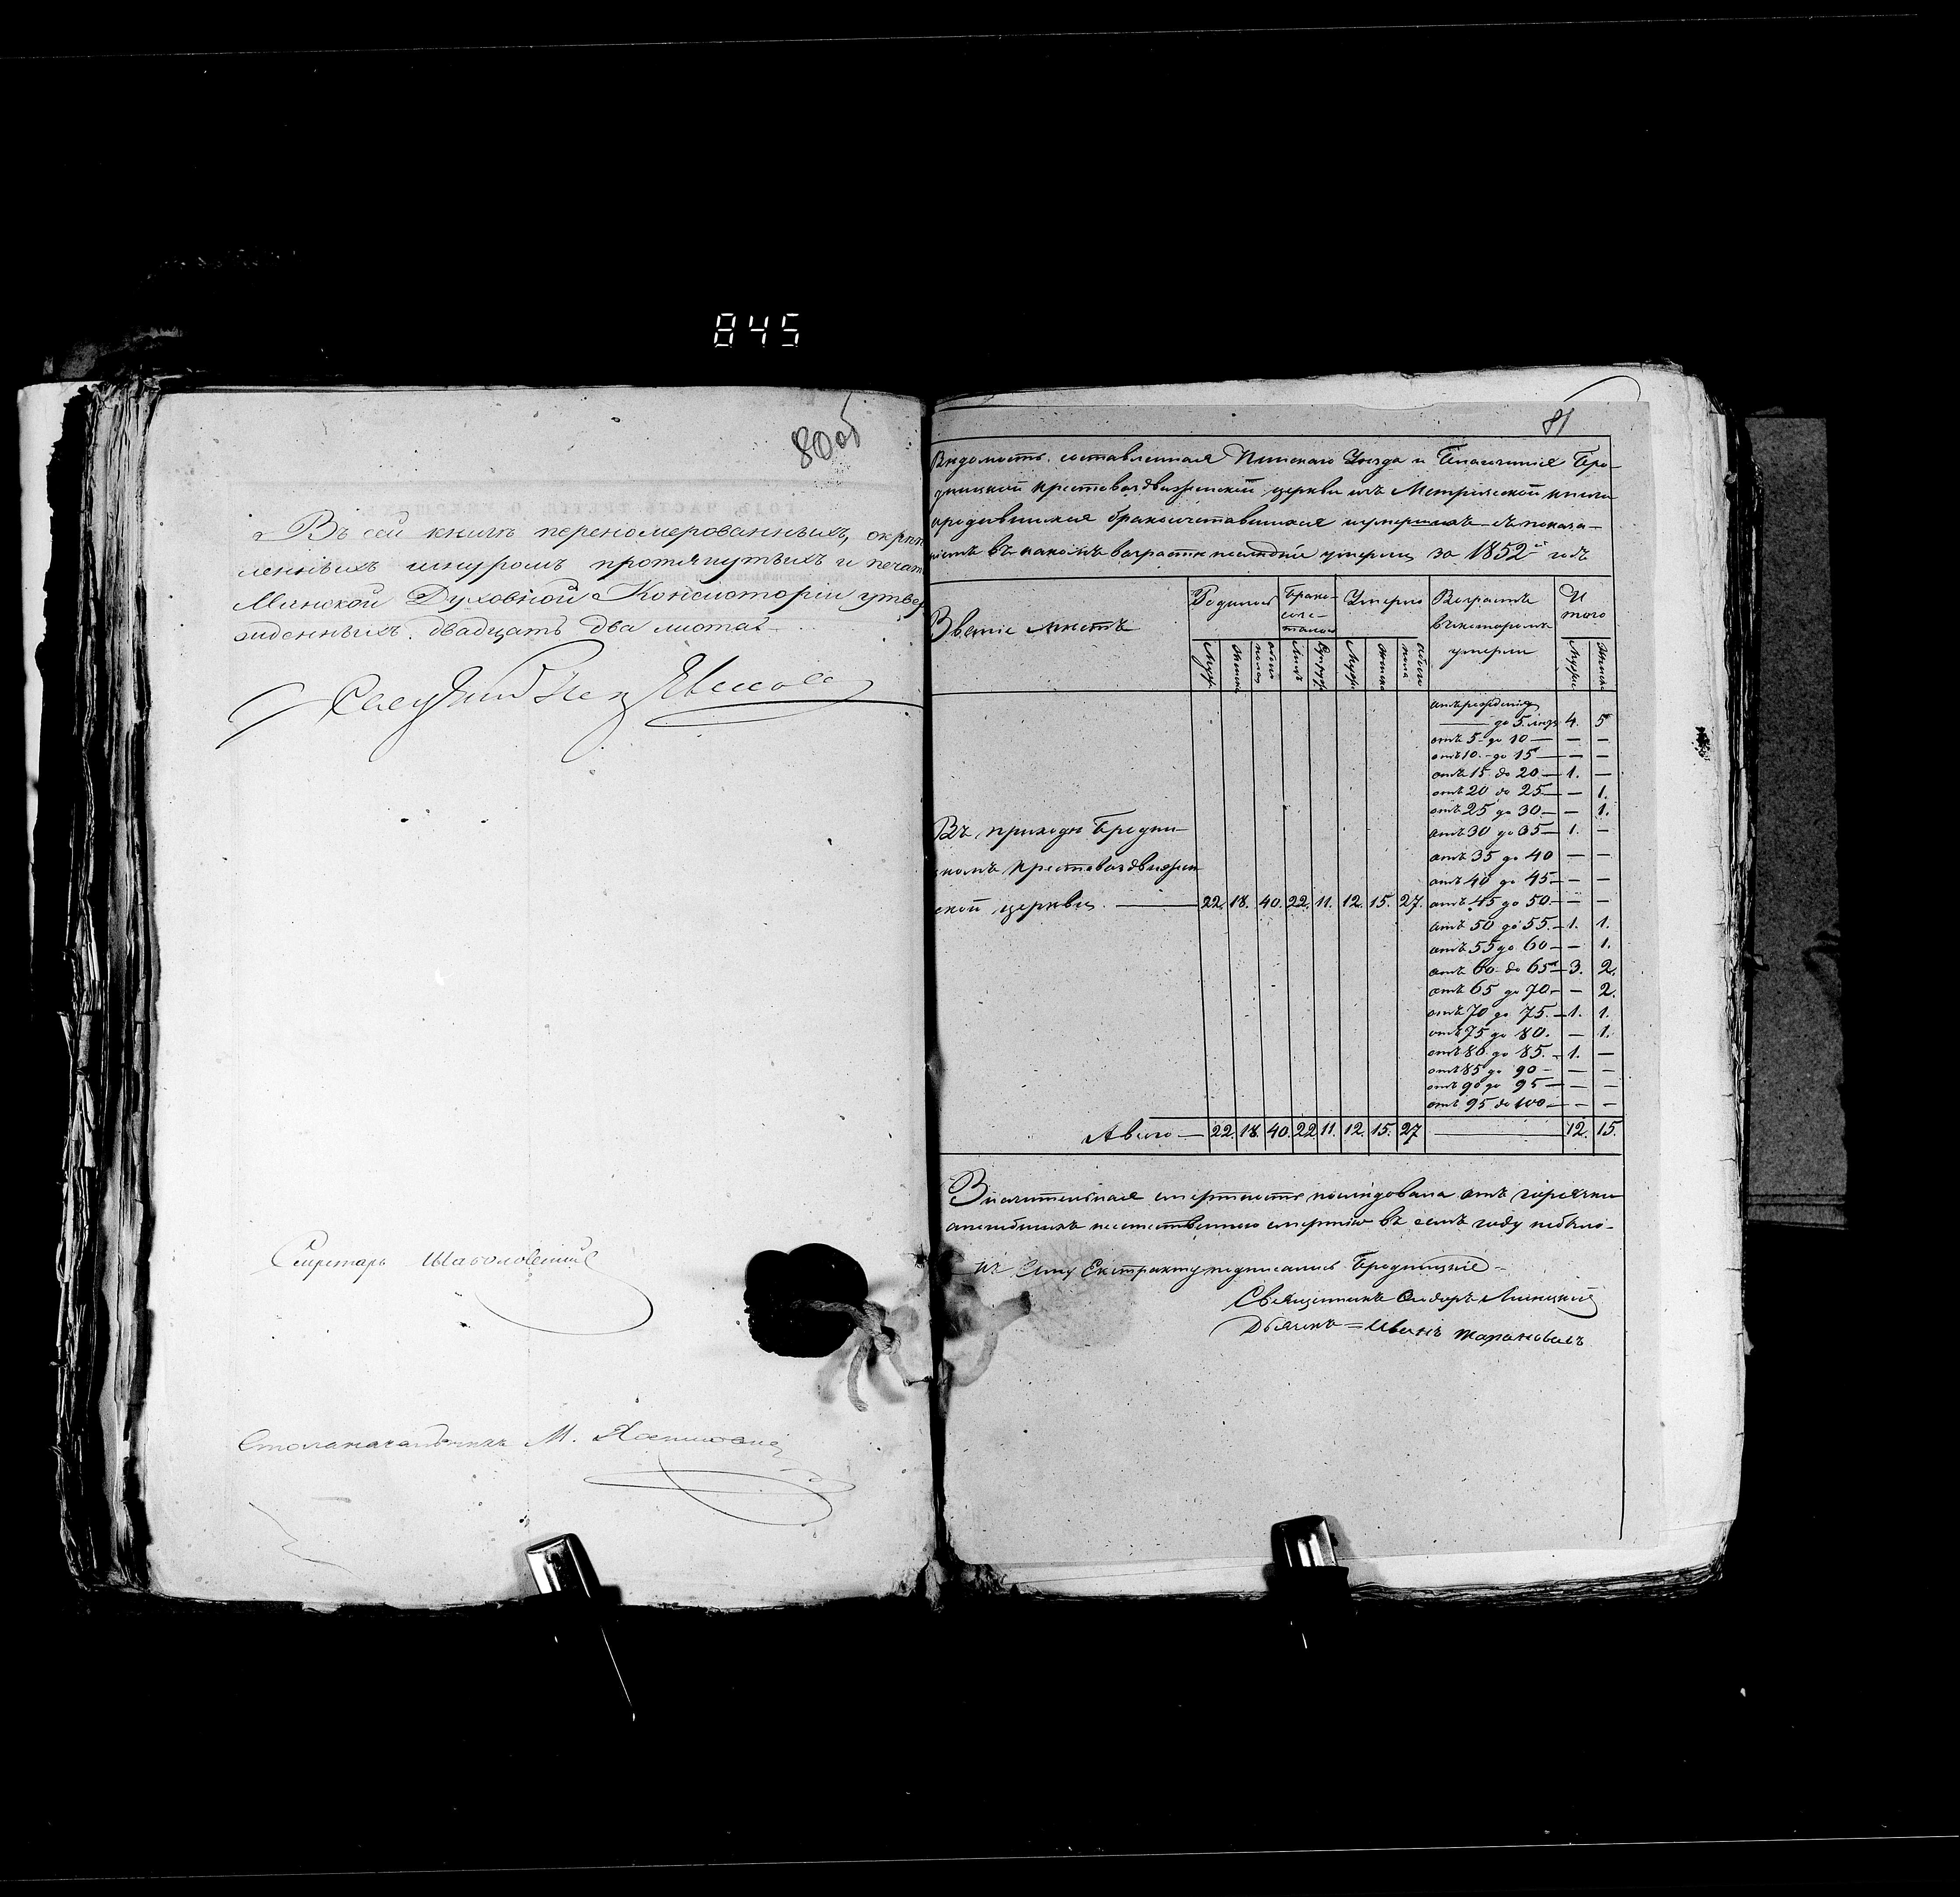 845
80об
Въ сей книгѣ переномерованныхъ, скрѣп
ленныхъ шнуромъ протянутыхъ и печат
Минской Духовной Консисторіи утвер
жденныхъ. двадцать два листа
Секретарь
Столоначальникъ М.
81
Вѣдомость составленная Пинскаго Уѣзда и Благочинія Бро-
дницкой крестовоздвиженской церкви изъ Метрической книги
ородившихся бракосочетавшихся иумершихъ съ показа-
ніемъ въ какомъ возрастѣ послѣдніе умерли за 1852й годъ
Званіе мѣстъ
Родилось
Брако-
соче-
талось
Умерло
Возрастъ
въкоторомъ
умерли
И
того
Муж. Женск. обоего пола Лицъ Супруж. Муж. Женск. обоего пола Муж. Женск.
отърожденія
— до 5. лѣтъ 4. 5
отъ 5 до 10 — — —
отъ 10 до 15 — — —
отъ 15 до 20 — 1. —
отъ 20 до 25 — — 1.
отъ 25 до 30 — — 1.
отъ 30 до 35 — 1. —
отъ 35 до 40 — —
отъ 40 до 45 — — —
отъ 45 до 50 — — —
отъ 50 до 55. — 1. 1.
отъ 55 до 60 — — 1.
отъ 60 до 65 — 3. 2.
отъ 65 до 70 — — 2.
отъ 70 до 75. — 1. 1.
отъ 75 до 80. — 1.
отъ 80 до 85. — 1. —
отъ 85 до 90 — — —
отъ 90 до 95 — — —
отъ 95 до 100 — — —
Въ приходѣ Бродни-
комъ крестовоздвижен
ской церкви — 22. 18. 40. 22. 11. 12. 15. 27.
Авсего — 22. 18. 40. 22 11. 12. 15. 27 — 12. 15.
Значительная смертность послѣдовала отъ горячки
апогибшихъ неестественною смертію въ семъ году небыло-
Къ Сему Екстракту подписались Бродницкіе
Священникъ
Дьячекъ = Иванъ